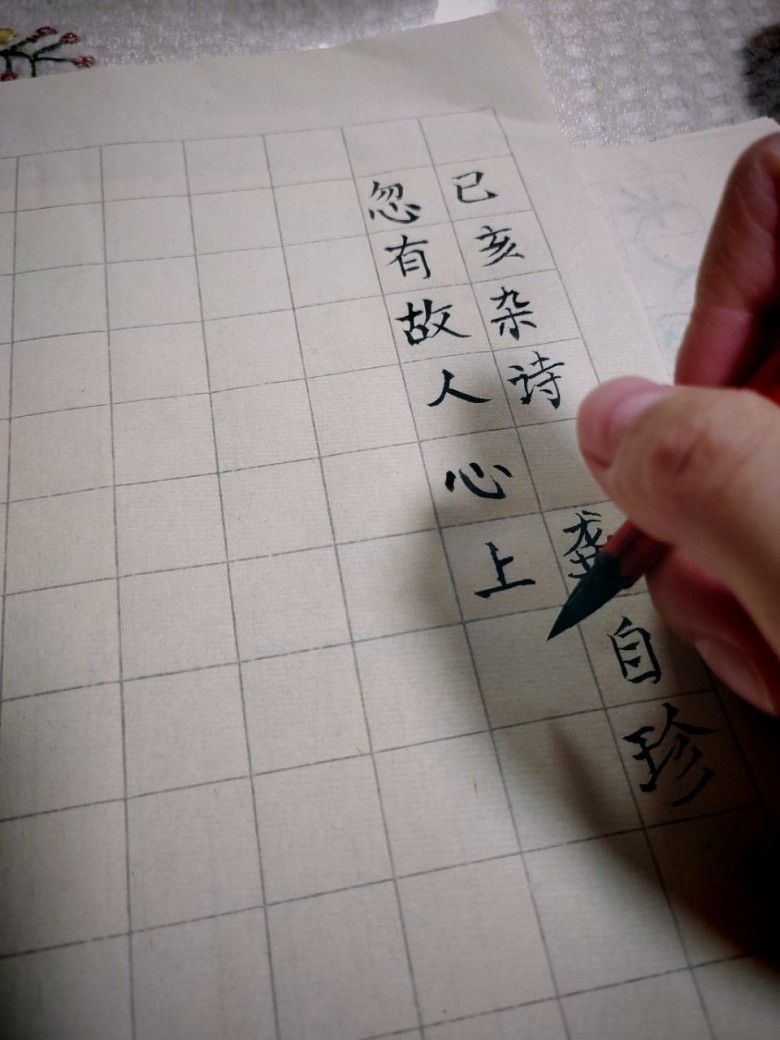 己亥杂诗 龚自珍
忽有故人心上